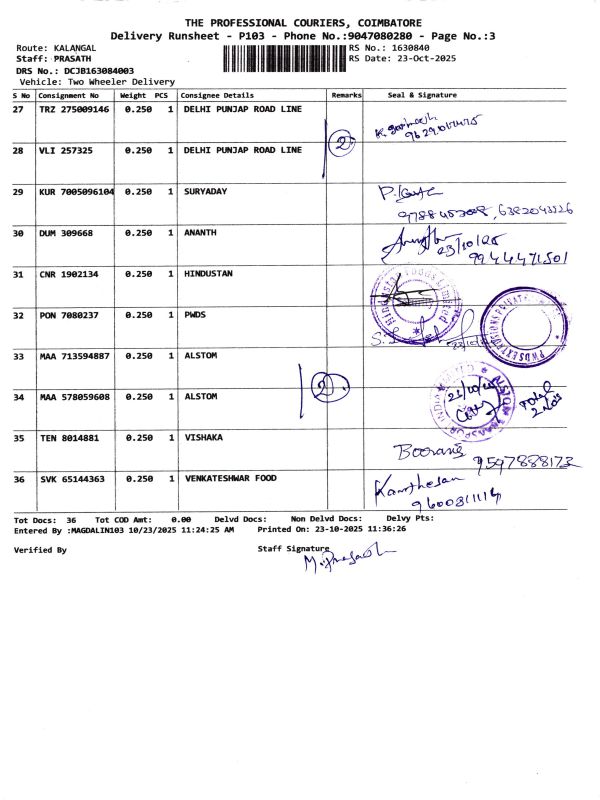 THE PROFESSIONAL COURIERS, COIMBATORE
Delivery Runsheet - P103 - Phone No.:9047080280 - Page No.:3
Route: KALANGAL RS No.: 1630840
Staff: PRASATH RS Date: 23-Oct-2025
DRS No.: DCJB163084003
Vehicle: Two Wheeler Delivery
S No Consignment No Weight PCS Consignee Details Remarks Seal & Signature
27 TRZ 275009146 0.250 1 DELHI PUNJAP ROAD LINE
2
28 VLI 257325 0.250 1 DELHI PUNJAP ROAD LINE
29 KUR 7005096104 0.250 1 SURYADAY
6382043226
30 DUM 309668 0.250 1 ANANTH
23/10/25
9944471501
31 CNR 1902134 0.250 1 HINDUSTAN
32 PON 7080237 0.250 1 PWDS
33 MAA 713594887 0.250 1 ALSTOM
2
34 MAA 578059608 0.250 1 ALSTOM
Total
2 Nos
35 TEN 8014881 0.250 1 VISHAKA
9597888172
36 SVK 65144363 0.250 1 VENKATESHWAR FOOD
Tot Docs: 36 Tot COD Amt: 0.00 Delvd Docs: Non Delvd Docs: Delvy Pts:
Entered By :MAGDALIN103 10/23/2025 11:24:25 AM Printed On: 23-10-2025 11:36:26
Verified By Staff Signature
M. Prasath